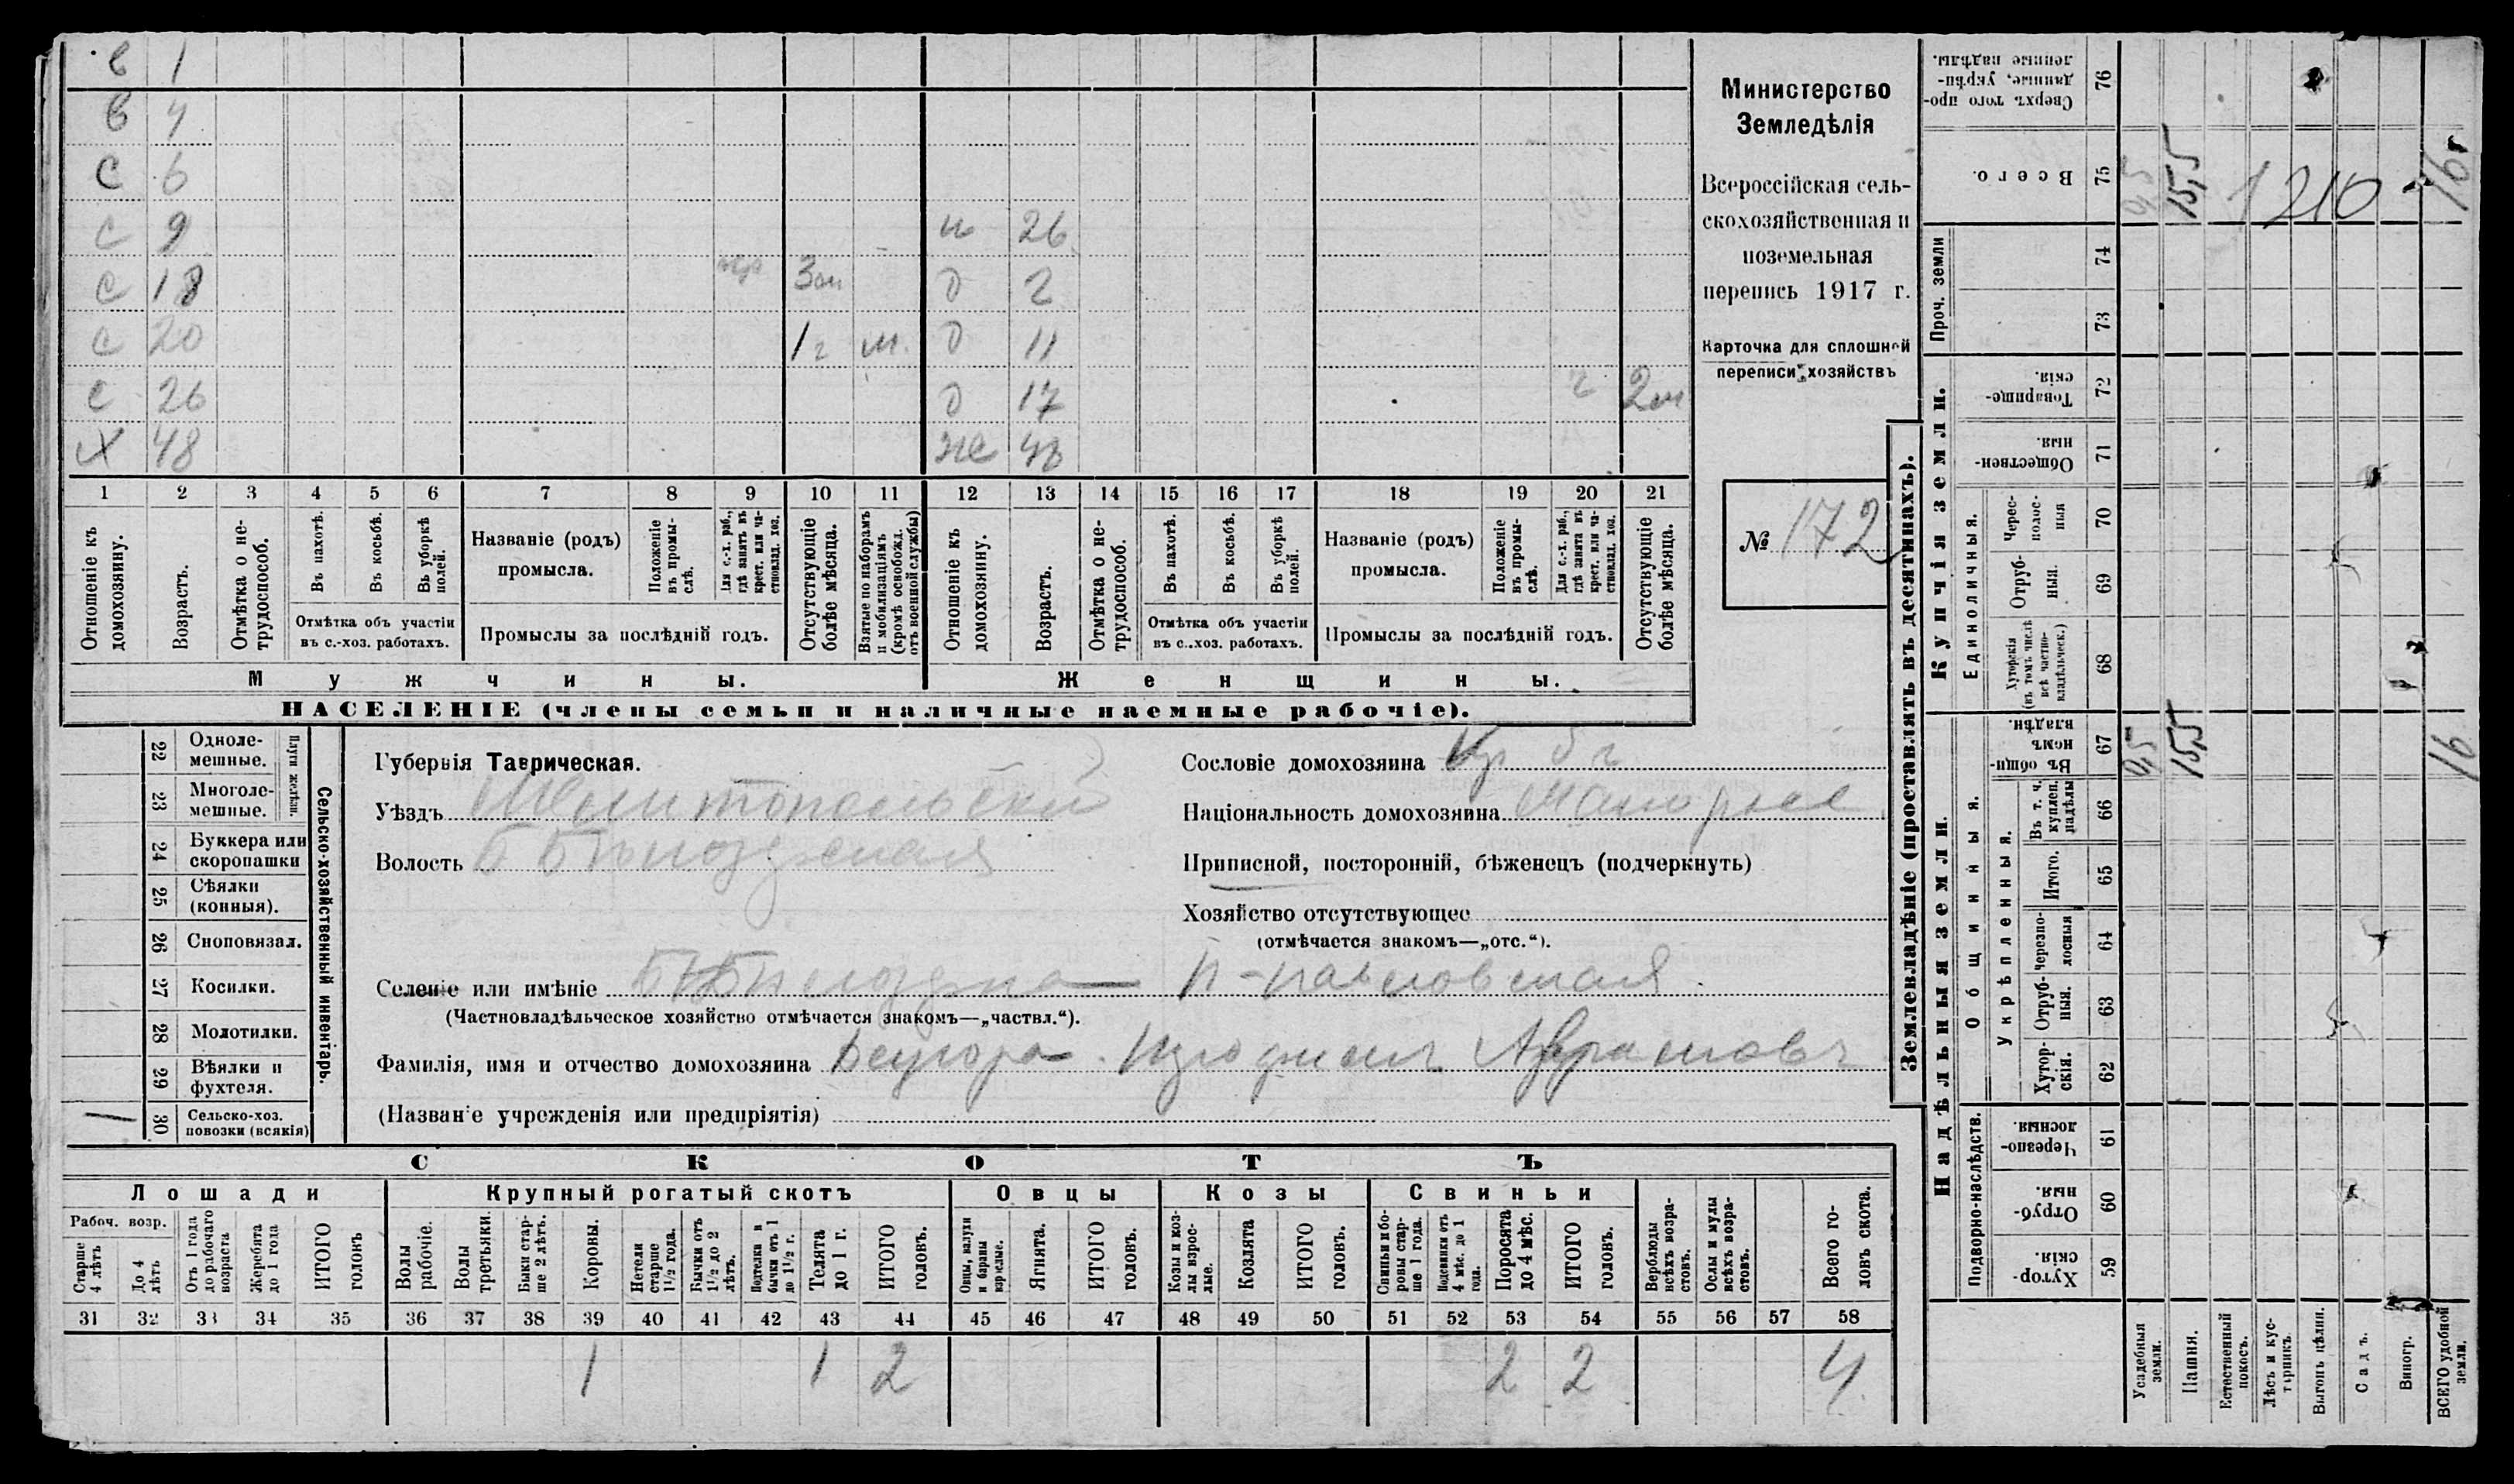 в 1
в 4
с 6
с 9 н 26
с 18 3 м д 2
с 20 1 г м. д 11
с 26 д 17 2 м
х 48 же 48
1 2 3 4 5 6 7 8 9 10 11 12 13 14 15 16 17 18 19 20 21
Отношеніе къ домохозяину.
Возрастъ.
Отмѣтка о не-
трудоспособ.
Въ пахотѣ.
Въ косьбѣ.
Въ уборкѣ
полей.
Отмѣтка объ участіи
въ с.-хоз. работахъ.
Названіе (родъ)
промысла.
Положеніе
въ промы-
слѣ.
Для с.-х. раб.,
гдѣ занятъ въ
крест. или ча-
стновлад. хоз.
Промыслы за послѣдній годъ.
Отсутствующіе
болѣе мѣсяца.
Взятые по наборамъ
и мобилизаціямъ
(кромѣ освобожд.
отъ военной службы)
Отношеніе къ
домохозяину.
Возрастъ.
Отмѣтка о не-
трудоспособ.
Въ пахотѣ.
Въ косьбѣ.
Въ уборкѣ
полей.
Отмѣтка объ участіи
въ с..хоз. работахъ.
Названіе (родъ)
промысла.
Положеніе
въ промы-
слѣ.
Для с.-х. раб.,
гдѣ занята въ
крест. или ча-
стновлад. хоз.
Промыслы за послѣдній годъ.
Отсутствующіе
болѣе мѣсяца.
Мужчины.
Женщины.
НАСЕЛЕНІЕ (члены семьи и наличные наемные рабочіе).
Министерство
Земледѣлія
Всероссійская сель-
скохозяйственная и
поземельная
перепись 1917 г.
Карточка для сплошной
переписи хозяйствъ
№ 172
22 Одноле-
мешные.
23 Многоле-
мешные.
Плуги желѣзн.
24 Буккера или
скоропашки
25 Сѣялки
(конныя).
26 Сноповязал.
27 Косилки.
28 Молотилки.
29 Вѣялки и
фухтеля.
30 Сельско-хоз.
повозки (всякія)
Сельско-хозяйственный инвентарь.
Губернія Таврическая.
Уѣздъ Мелитопольскій
Волость Б Бѣлозерская
Сословіе домохозяина Кр
Національность домохозяина Малорос
Приписной, посторонній, бѣженецъ (подчеркнуть)
Хозяйство отсутствующее
(отмѣчается знакомъ—„отс.“).
Селеніе или имѣніе Н-павловская
(Частновладѣльческое хозяйство отмѣчается знакомъ—„частвл.“).
Фамилія, имя и отчество домохозяина Аврамовъ
(Названіе учрежденія или предпріятія)
СКОТЪ
Лошади
Рабоч. возр.
Старше
4 лѣтъ
До 4
лѣтъ
Отъ 1 года
до рабочаго
возраста
Жеребята
до 1 года
ИТОГО
головъ
Крупный рогатый скотъ
Волы
рабочіе.
Волы
третьяки.
Быки стар-
ше 2 лѣтъ.
Коровы.
Нетели
старше
1½ года.
Бычки отъ
1½ до 2
лѣтъ.
Подтелки и
бычки отъ 1
до 1½ г.
Телята
до 1 г.
ИТОГО
головъ.
Овцы
Овцы, валухи
и бараны
взрослые.
Ягнята.
ИТОГО
головъ.
Козы
Козы и коз-
лы взрос-
лые.
Козлята
ИТОГО
головъ.
Свиньи
Свиньи и бо-
ровы стар-
ше 1 года.
Подсвинки отъ
4 мѣс. до 1
года.
Поросята
до 4 мѣс.
ИТОГО
головъ.
Верблюды
всѣхъ возра-
стовъ.
Ослы и мулы
всѣхъ возра-
стовъ.
Всего го-
ловъ скота.
31 32 33 34 35 36 37 38 39 40 41 42 43 44 45 46 47 48 49 50 51 52 53 54 55 56 57 58
1 1 2 2 2 4
Землевладѣніе (проставлять въ десятинахъ).
Сверхъ того про-
данные, укрѣп-
ленные надѣлы. 76
Всего. 75 0,5 15,5 1210 16
Проч. земли
74
73
Купчія земли.
Товарище-
скія. 72
Обществен-
ныя. 71
Единоличныя.
Черес-
полос-
ныя 70
Отруб-
ныя. 69
Хуторскія
(въ томъ числѣ
всѣ частно-
владѣльческ.) 68
Надѣльныя земли.
Общинныя.
Въ общи-
номъ
владѣн. 67 0,5 15,5 16
Укрѣпленныя.
Въ т. ч.
куплен.
надѣлы 66
Итого. 65
Черезпо-
лосныя 64
Отруб-
ныя. 63
Хутор-
скія. 62
Подворно-наслѣдств.
Черезпо-
лосныя. 61
Отруб-
ныя. 60
Хутор-
скія. 59
Усадебныя
земли.
Пашня.
Естественный
покосъ.
Лѣсъ и кус-
тарникъ.
Выгонъ цѣлин.
Садъ.
Виногр.
ВСЕГО удобной
земли.